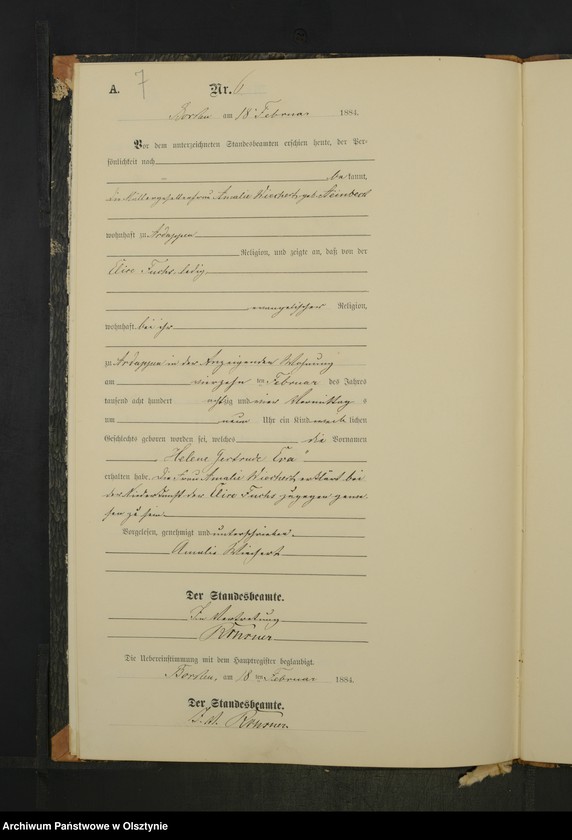 A. 7 Nr. 6
am 18 Februar 1884.
Vor dem unterzeichneten Standesbeamten erschien heute, der Per-
sönlichkeit nach
be kannt,
die Müllergesellenfrau Amalie Wiechert geb.
wohnhaft zu Arklappen
Religion, und zeigte an, daß von der
Elise Fuchs, ledig,
evangelischer Religion,
wohnhaft bei ihr
zu in der Anzeigenden Wohnung
am vierzehn ten Februar des Jahres
tausend acht hundert achtzig und vier Vormittag s
um neun Uhr ein Kind weib lichen
Geschlechts geboren worden sei, welches die Vornamen
Helene Gertrude Eva
erhalten habe. Die Frau Amalie Wiechert erklärt bei
der Niederkunft der Elise Fuchs zugegen gewe-
sen zu sein.
Vorgelesen, genehmigt und unterschrieben
Amalie Wiechert
Der Standesbeamte.
In Vertretung
Die Uebereinstimmung mit dem Hauptregister beglaubigt.
am 18 ten Februar 1884.
Der Standesbeamte.
Archiwum Państwowe w Olsztynie